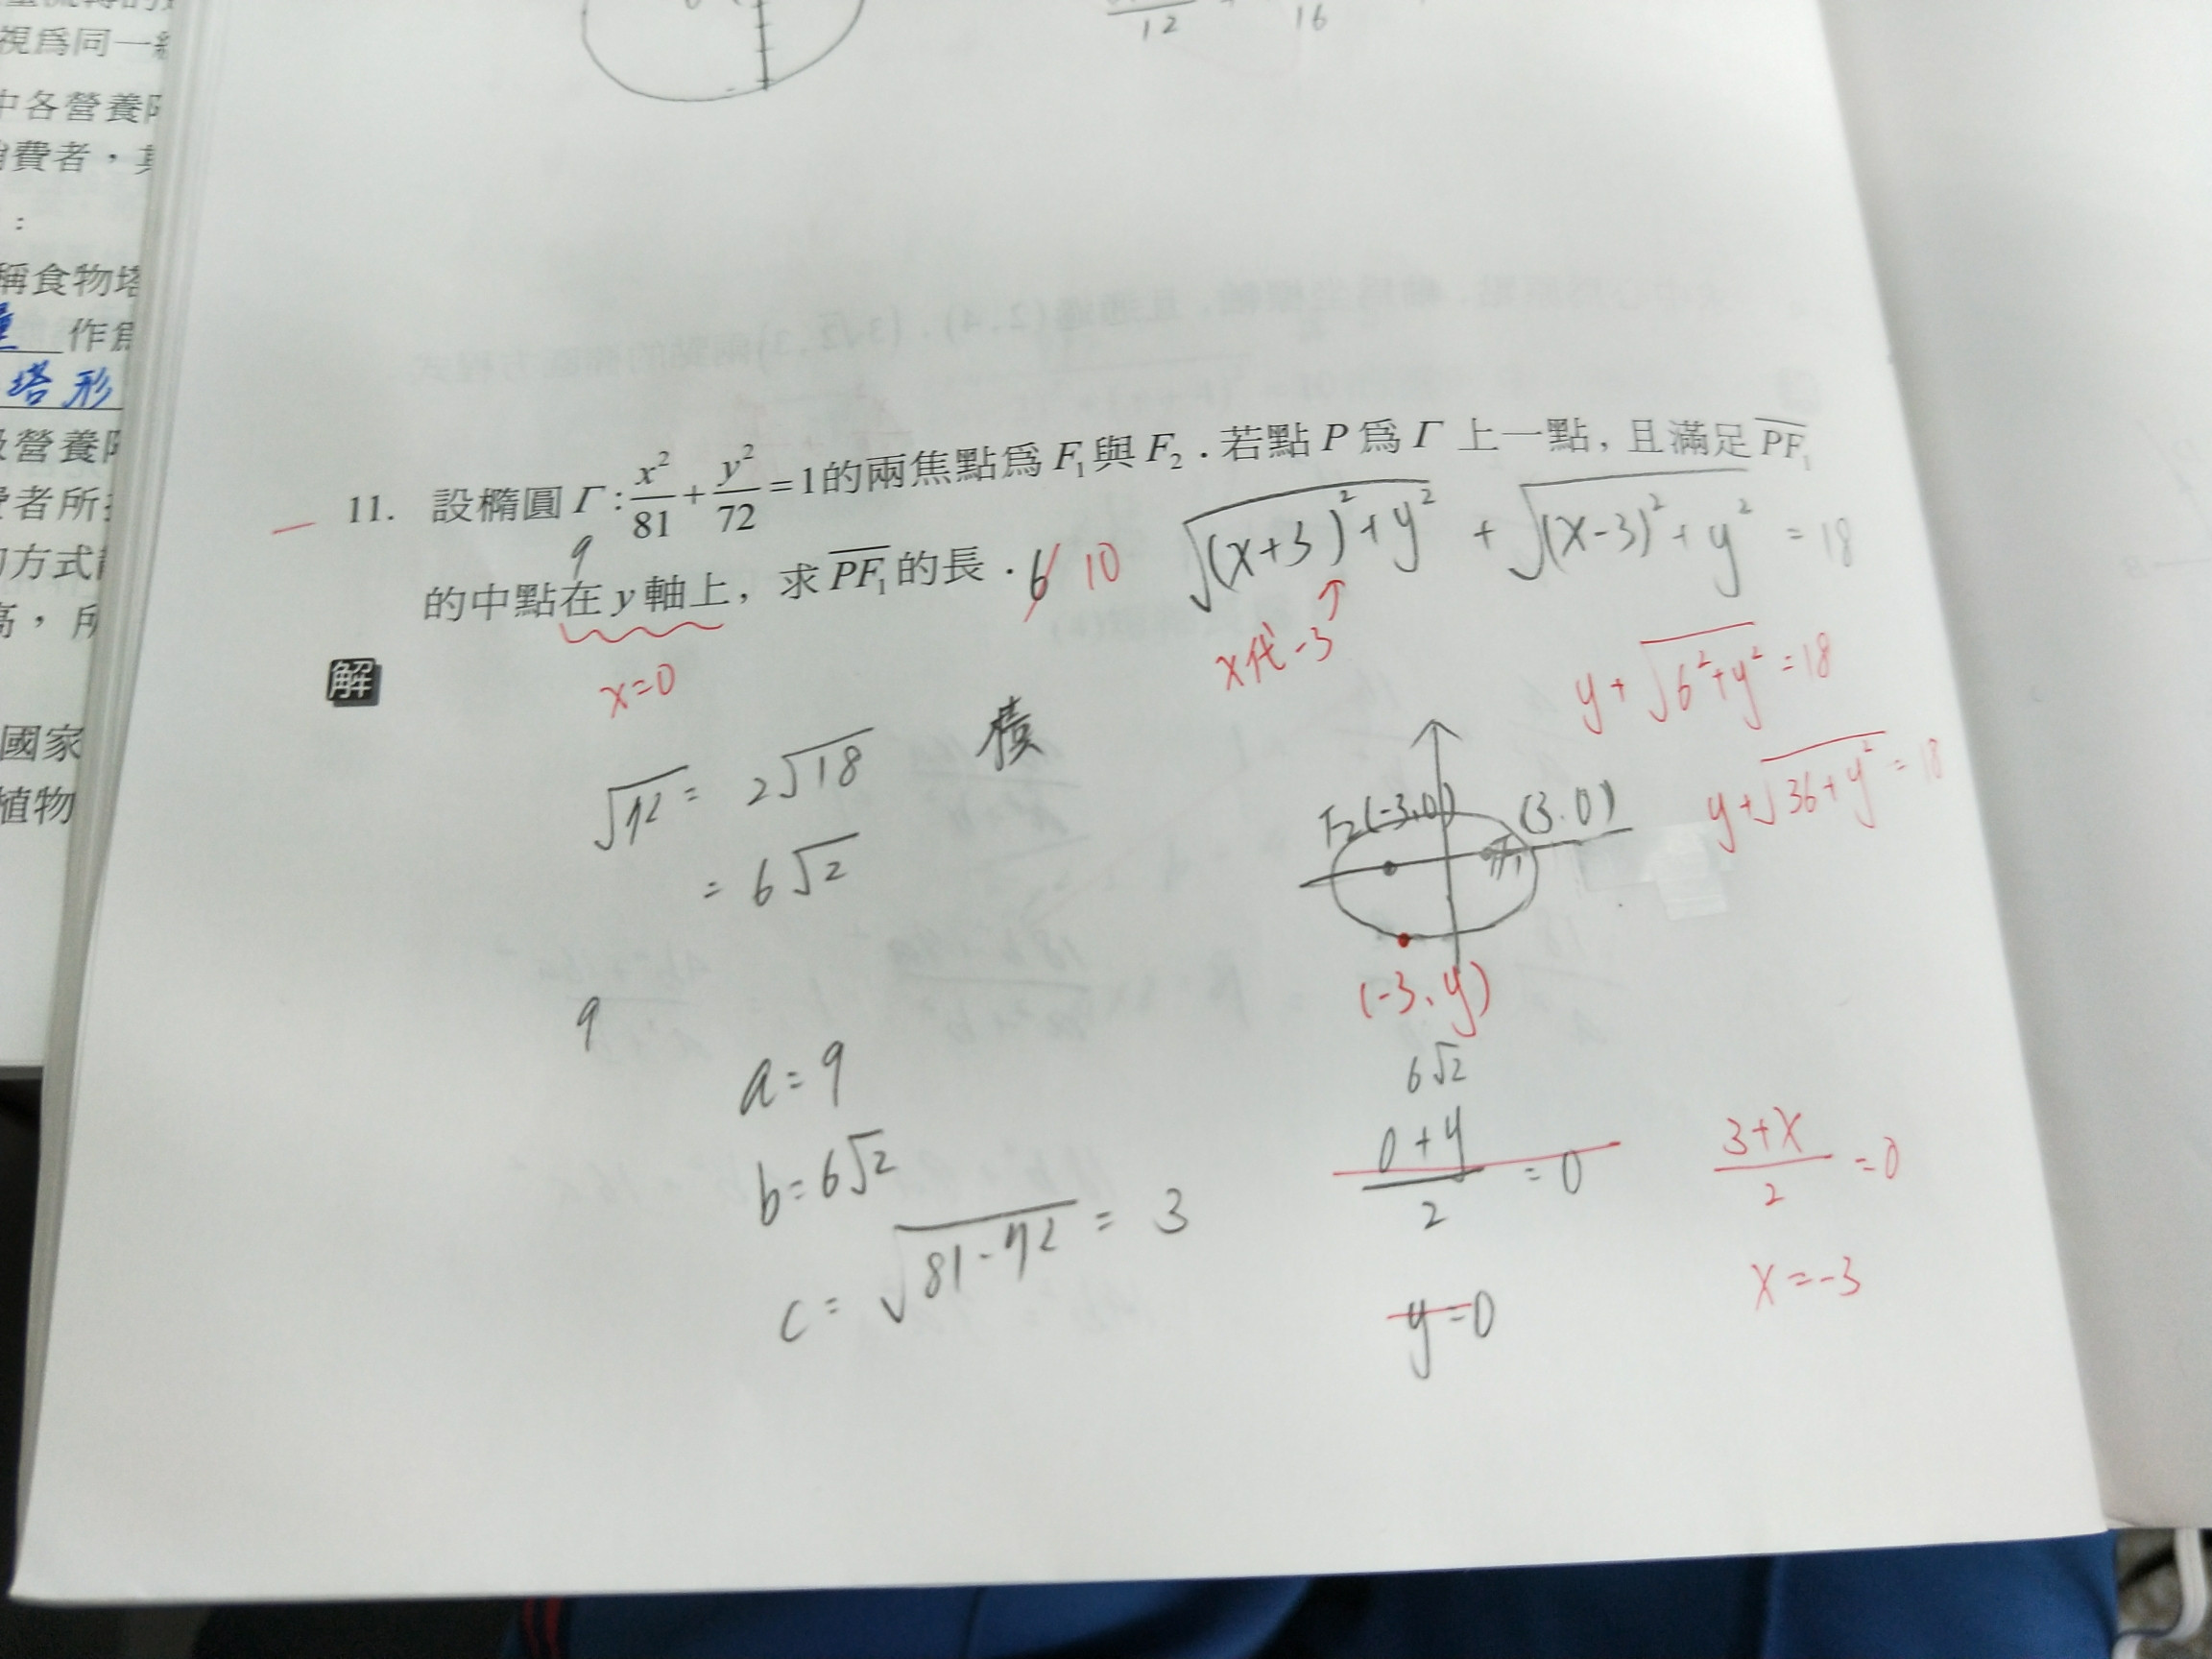 視爲同一
中各營養
費者，其
：
稱食物塔
作爲
塔形
營養階
費者所
的方式
高，所
國家
植物
12
16
11. 設橢圓Γ:x²/81+y²/72=1的兩焦點爲F₁與F₂．若點P爲Γ上一點，且滿足PF₁
的中點在y軸上，求PF₁的長．6 10
9
√((x+3)²+y²) + √((x-3)²+y²) = 18
x=0
x代-3 ↑
y+√(6²+y²)=18
y+√(36+y²)=18
解
√72 = 2√18
= 6√2
積
F₂(-3,0)
(3.0)
F₁
(-3、y)
6√2
9
a=9
b=6√2
c=√(81-72) = 3
(0+y)/2 = 0
y=0
(3+x)/2 =0
x=-3